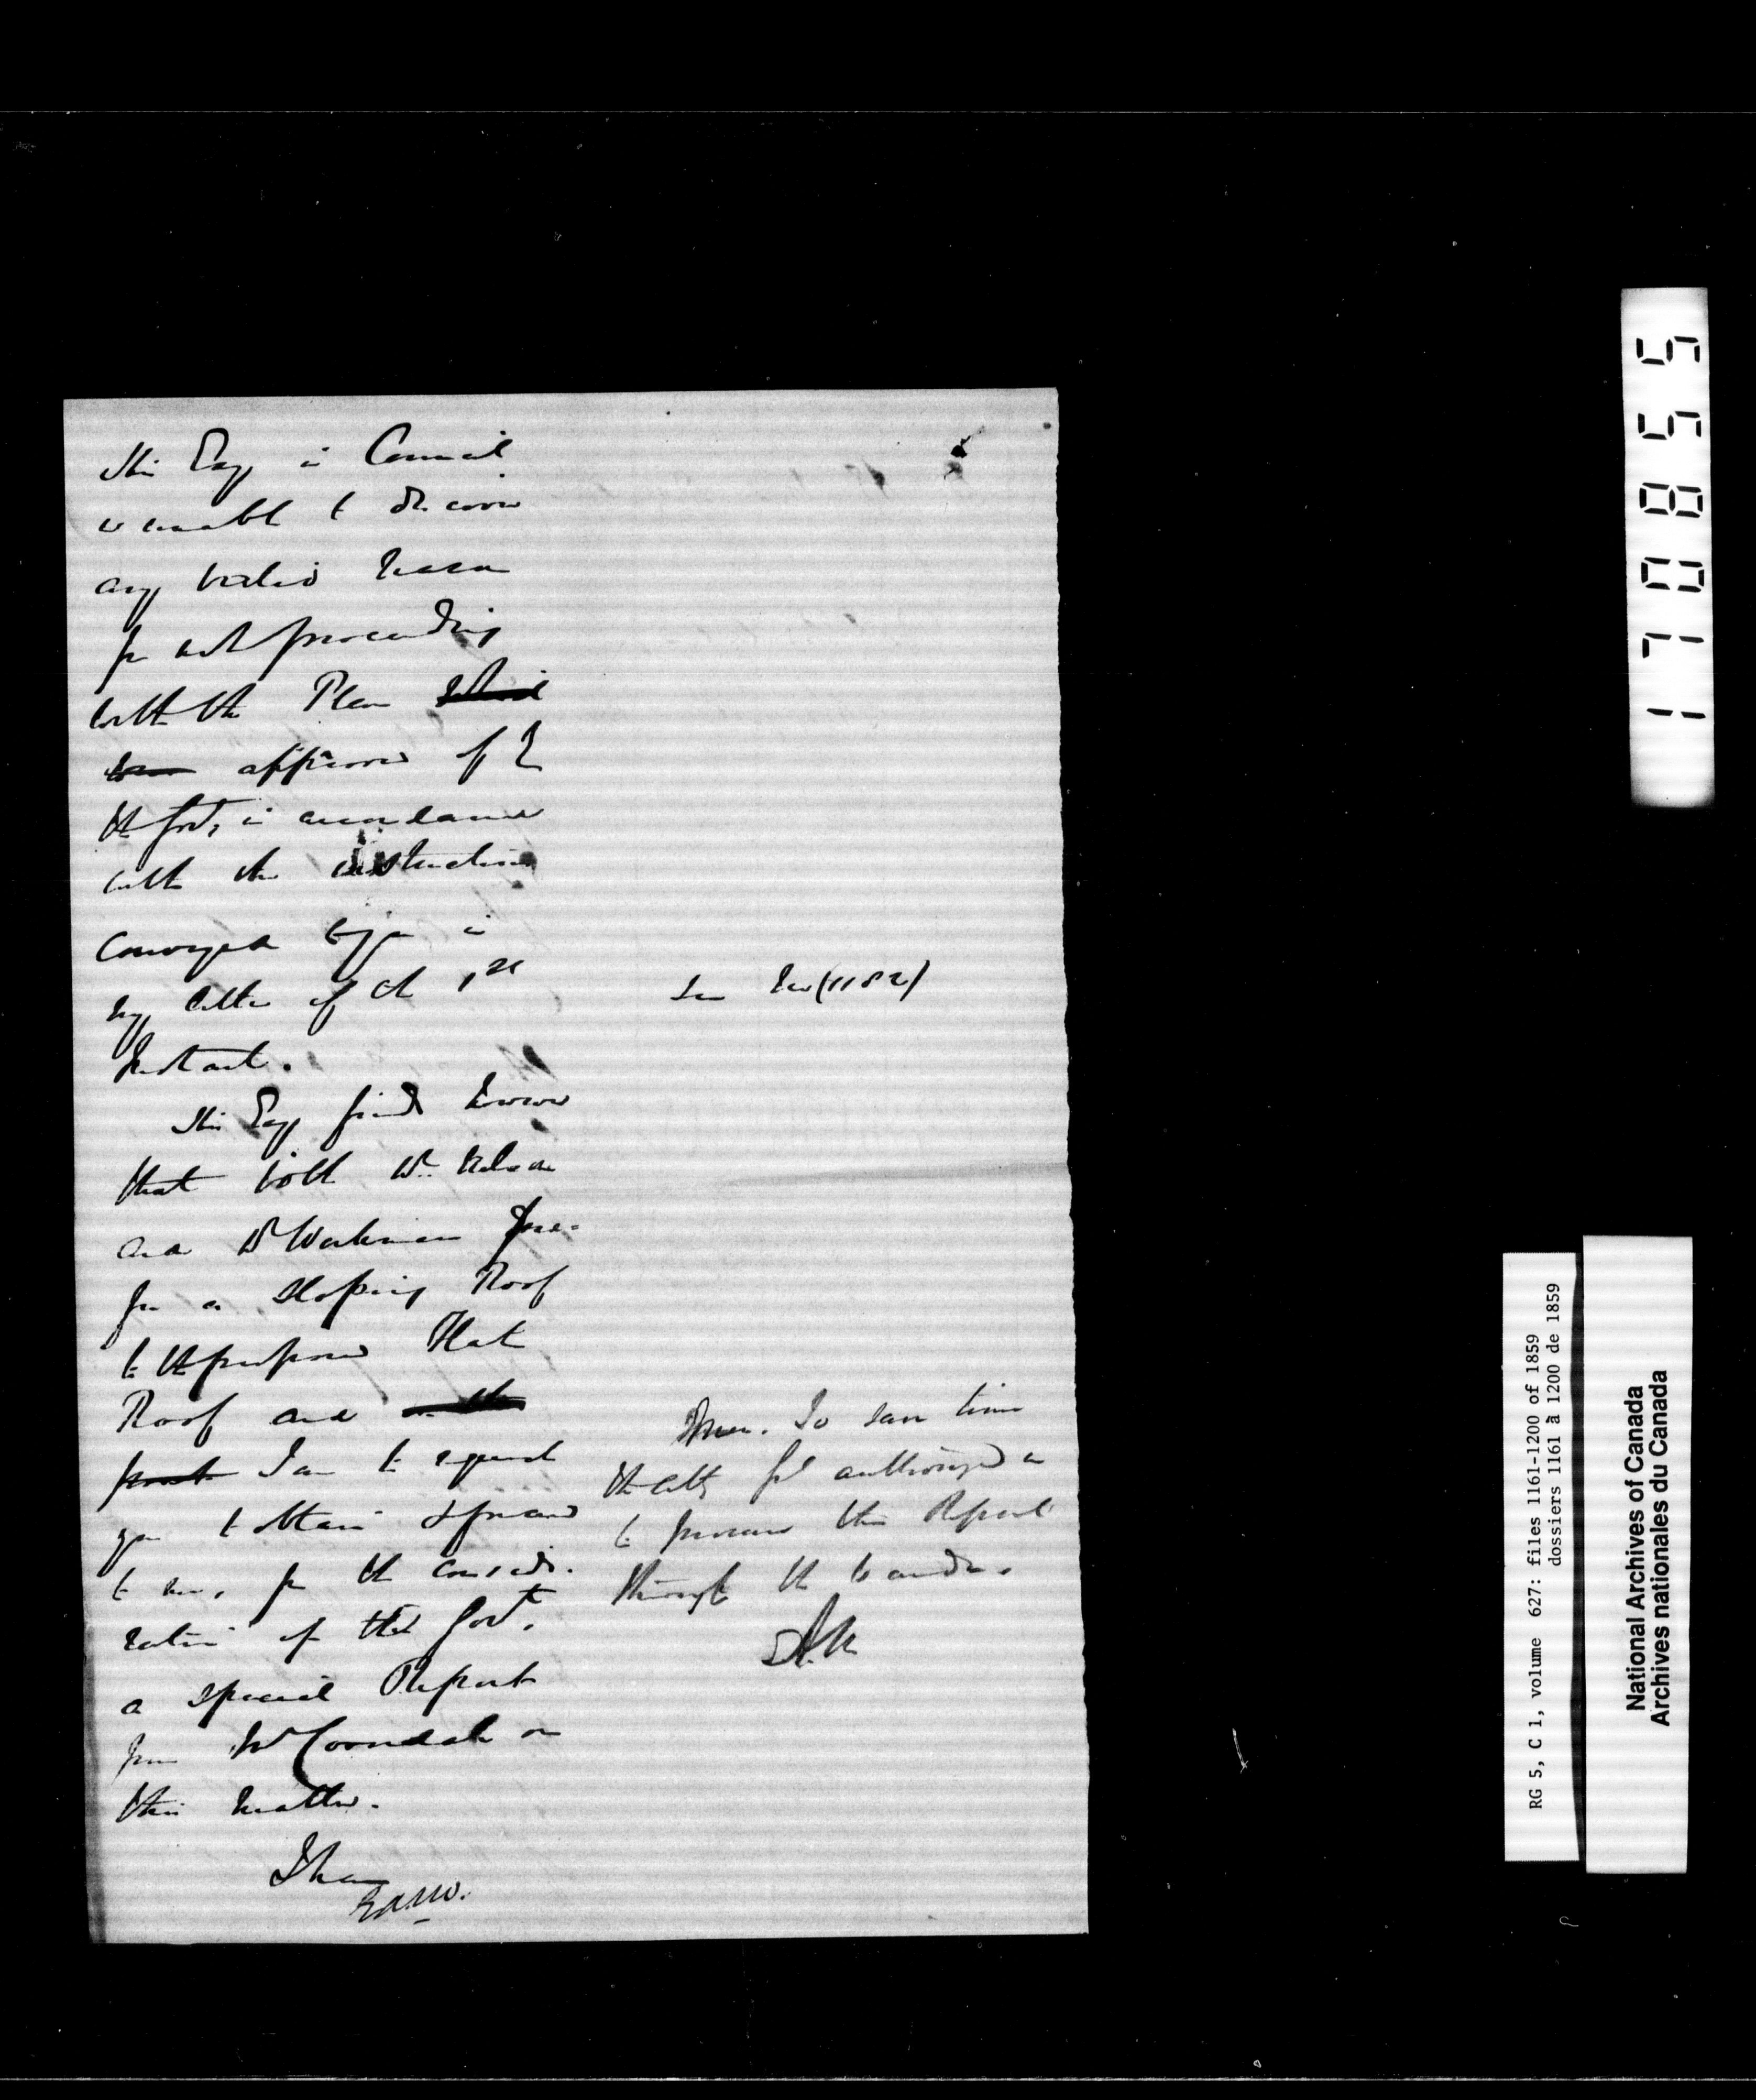 His Exy in Council
is unable to discover
any valid reason
for not proceeding
with the Plan
approved of by
the Govt, in accordance
with the instructions
conveyed to you in
my letter of the 1st
Instant.
His Exy finds however
that both Dr. Nelson
and Dr Workman pre-
fer a sloping Roof
to the proposed Flat
Roof and
I am to request
you to obtain & forward
to me, for the conside-
ration of the Govt.
a special Report
from Mr
on
this matter.
I have
E.A.M.
See (1182)
Mem. To save time
authorized
to procure this Report
through the
National Archives of Canada
Archives nationales du Canada
RG 5, C 1, volume 627: files 1161-1200 of 1859
dossiers 1161 à 1200 de 1859
170855